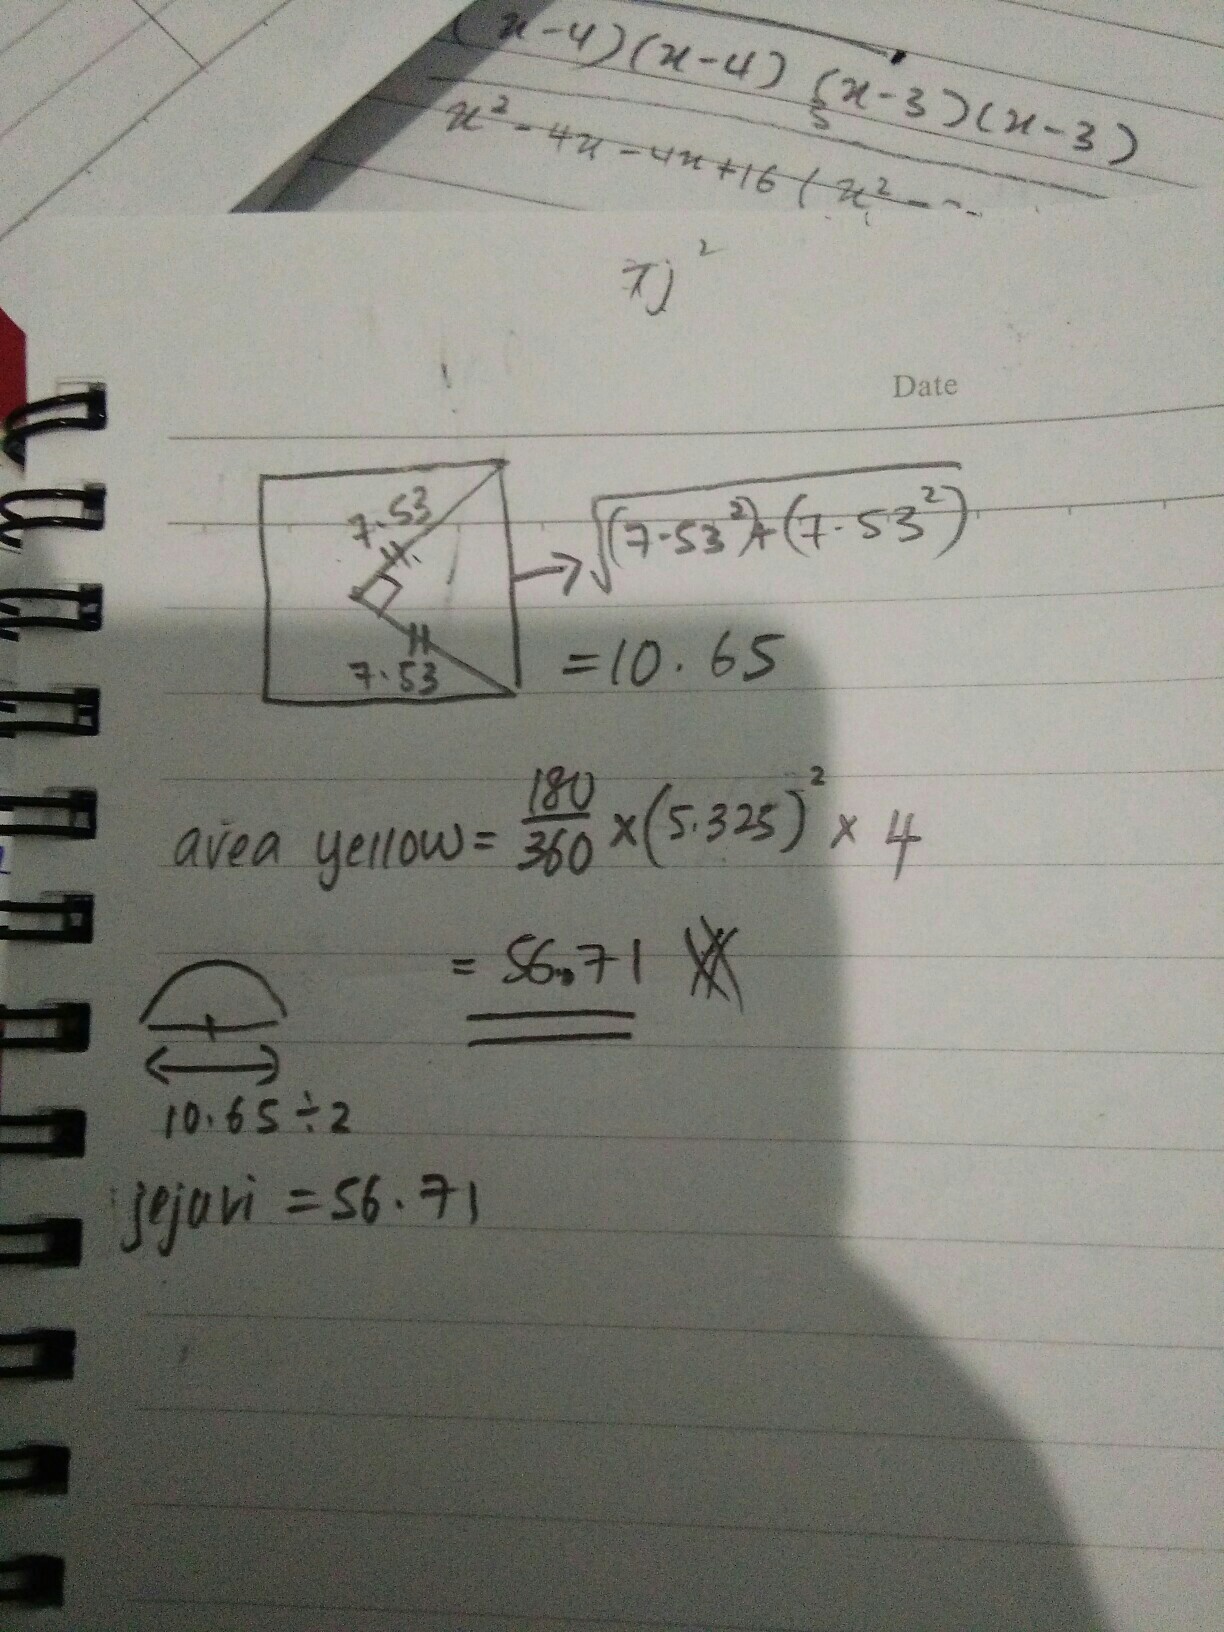 (x-4)(x-4) (x-3)(x-3)
x² - 4x - 4x + 16 ( x² - -.
πj²
Date
7.53
7.53
→ √(7.53²)+(7.53²)
= 10.65
area yellow = 180/360 × (5.325)² × 4
= 56.71
10.65 ÷ 2
jejari = 56.71